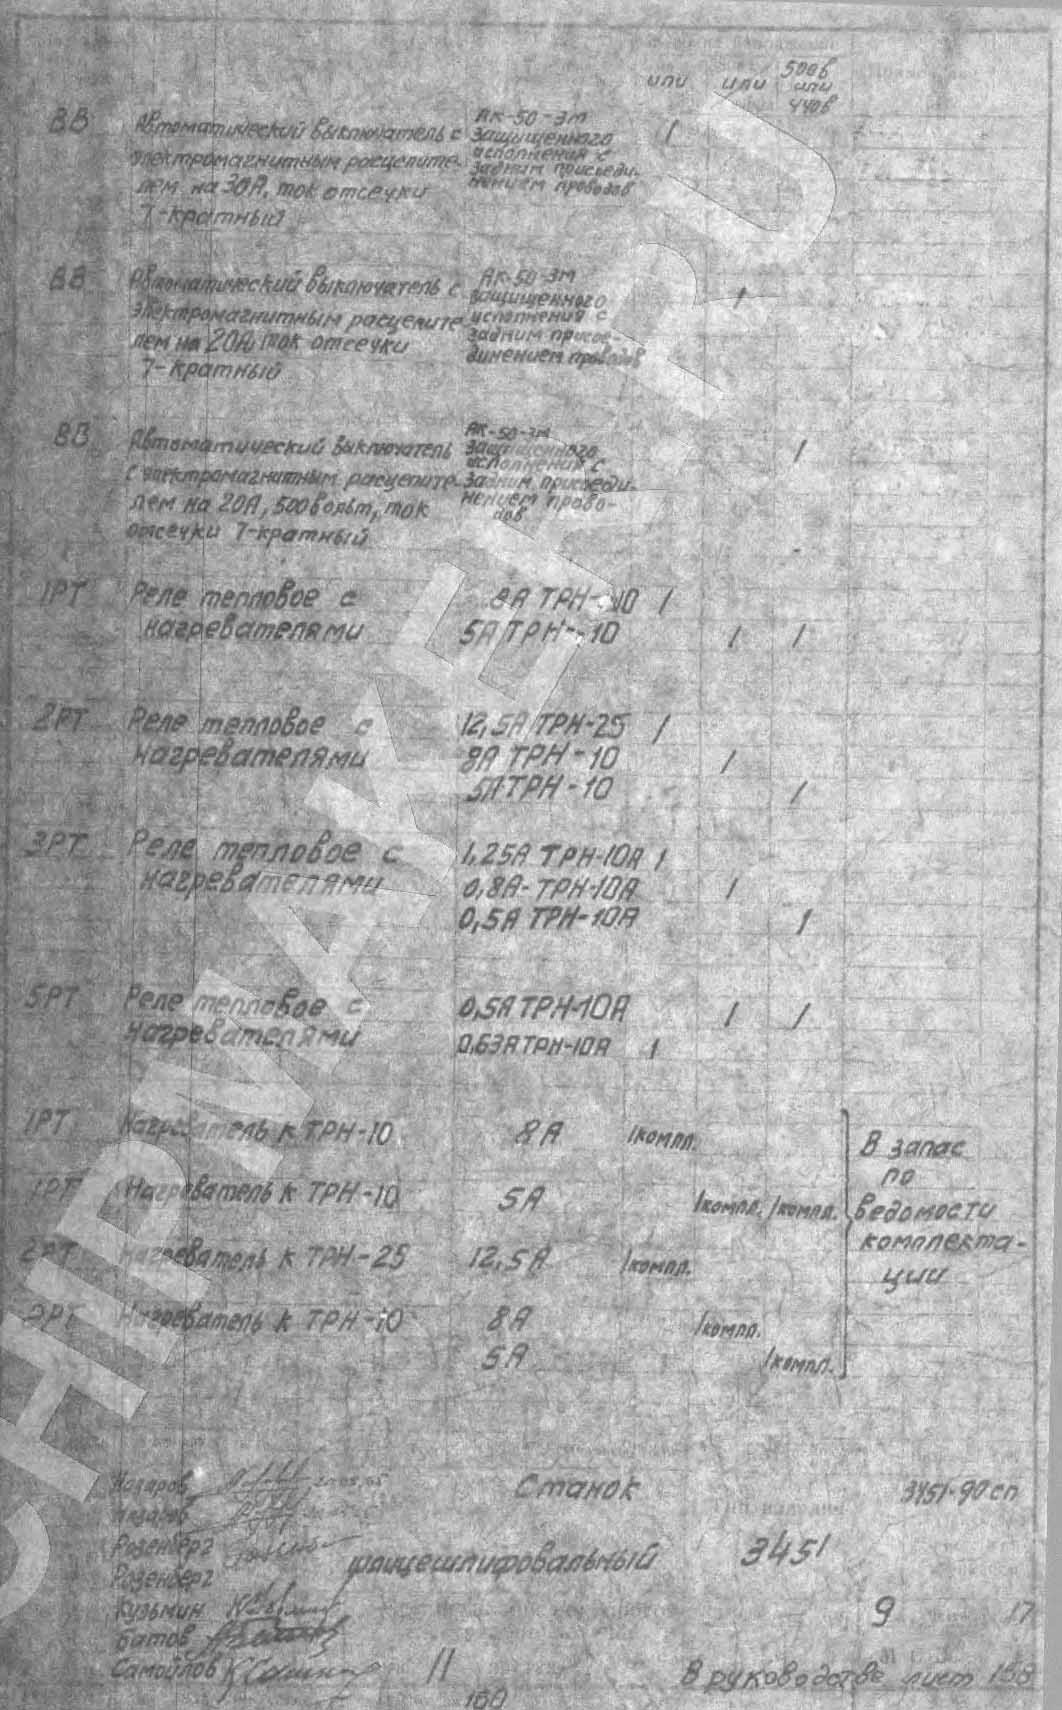 или или 500в
или
440в
ВВ Автоматический выключатель с АК-50-3м 1
электромагнитным расцепите- защищенного
лем на 30А, ток отсечки исполнения с
7-кратный задним присоеди-
нением проводов
ВВ Автоматический выключатель с АК-50-3М 1
электромагнитным расцепите защищенного
лем на 20А, ток отсечки исполнения с
7-кратный задним присое-
динением проводов
ВВ Автоматический выключатель АК-50-3М 1
с электромагнитным расцепите- защищенного
лем на 20А, 500 вольт, ток исполнения с
отсечки 7-кратный задним присоеди-
нением прово-
дов
1РТ Реле тепловое с 8А ТРН-10 1
нагревателями 5А ТРН-10 1 1
2РТ Реле тепловое с 12,5А ТРН-25 1
нагревателями 8А ТРН-10 1
5А ТРН-10 1
3РТ Реле тепловое с 1,25А ТРН-10А 1
нагревателями 0,8А-ТРН-10А 1
0,5А ТРН-10А 1
5РТ Реле тепловое с 0,5А ТРН-10А 1 1
нагревателями 0,63А ТРН-10А 1
1РТ Нагреватель к ТРН-10 8А 1компл. В запас
по
1РТ Нагреватель к ТРН-10 5А 1компл. 1компл. ведомости
2РТ Нагреватель к ТРН-25 12,5А 1компл. комплекта-
ции
2РТ Нагреватель к ТРН-10 8А 1компл.
5А 1компл.
Назаров Станок 3451-90сп
Назаров
Розенберг шлицешлифовальный 3451
Розенберг
Кузьмин 9 17
Батов
Самойлов 11 В руководстве лист 158
160
CHIPMAKER.RU